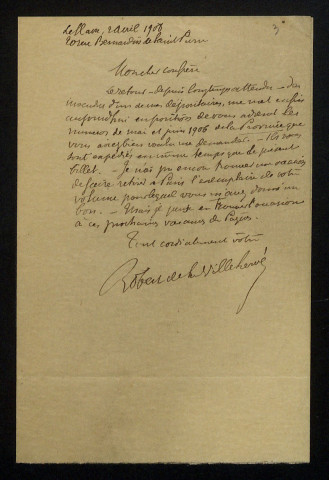 Le Havre, 2 avril 1906
rue Bernardin de Saint Pierre
3
Mon cher confrère
Le retour – depuis longtemps attendu – des
invendus d'un de nos dépositaires, me met enfin
aujourd'hui en position de vous adresser les
numéros de mai et juin 1906 de la Province que
vous avez bien voulu me demander. Ils vous
sont expédiés en même temps que le présent
billet. – Je n'ai pu encore trouver un occasion
de faire retirer à Paris l'exemplaire de votre
volume pour lequel vous m'avez donné un
bon. – Mais je pense en trouver l'occasion
à ces prochaines vacances de Pâques.
Tout cordialement vôtre
Robert de la Villehervé